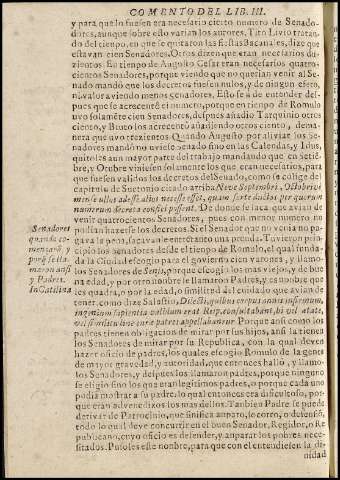 COMENTO DEL LIB. III.
y para que lo fuessen era necesario cierto numero de Senado-
dores, aunque sobre esto varian los autores. Tito Livio tratan-
do del tiempo, en que se quitaron las fiestas Bacanales, dize que
estavan cien Senadores. Otros dizen que eran necesarios du-
zientos. En tiempo de Augusto Cesar eran necesarios quatro-
cientos Senadores, porque viendo que no querian venir al Se-
nado mandò que los decretos fuessen nulos, y de ningun efeto,
ni valor aviendo menos senadores. Esto se à de entender des-
pues que se acrecentò el numero, porque en tiempo de Romulo
uvo solamẽte cien Senadores, despues añadio Tarquinio otros
ciento, y Bruto los acrecentò añadiendo otros ciento, de ma-
nera que uvo trezientos. Quando Augusto por aliviar los Se-
nadores mandò no uviesse Senado sino en las Calendas, y Idus,
quitoles aun mayor parte del trabajo mandando que en Setiẽ-
bre, y Octubre viniessen solamente los que eran necesarios, para
que fuessen validos los decretos del Senado, como se colige del
capitulo de Suetonio citado arriba. Neve Septembri, Octobrive
mense ullos adesse alios necesse esset, quam sorte ductos per quorum
numerum decreta confici possent. De donde se saca que avian de
venir quatrocientos Senadores, pues con menor numero no
Senadores podian hazerse los decretos. Si el Senador que no venia no pa-
quando co- gava la pena, sacavanle entretanto una prenda. Tuvieron prin-
mençarõ, y cipio los senadores desde el tiempo de Romulo, el qual funda-
porq̃ se lla- da la Ciudad escogio para el govierno cien varones, y llamo-
maron ansi los Senadores de Senis, porque escogio los mas viejos, y de bue
y Padres. na edad, y por otro nombre se llamaron Padres, y es nombre que
In Catilina les quadra, o por la edad, o similitud del cuidado que avian de
tener. como dize Salustio, Dilecti, quibus corpus annis infirmum,
ingenium sapientia validum erat Reip. consultabant, hi vel ætate,
vel similitudine curæ patres appellabantur. Porque ansi como los
padres tienen obligacion de mirar por sus hijos, ansi la tienen
los Senadores de mirar por su Republica, con la qual deven
hazer oficio de padres, los quales escogio Romulo de la gente
de mayor gravedad, y autoridad, que entonces hallò, y llamo-
los Senadores, y despues los llamaron padres, porque ninguno
se eligio sino los que eran legitimos padres, o porque cada uno
podia mostrar a su padre, lo qual entonces era dificultoso, por-
que eran advenedizos los mas dellos. Tambien Padre se puede
derivar de Patrocinio, que sinifica amparo, socorro, o defensa,
todo lo qual deve concurrir en el buen Senador, Regidor, o Re
publicano, cuyo oficio es defender, y amparar los pobres nece-
sitados. Pusoles este nombre, para que con el entendiessen la dig-
nidad